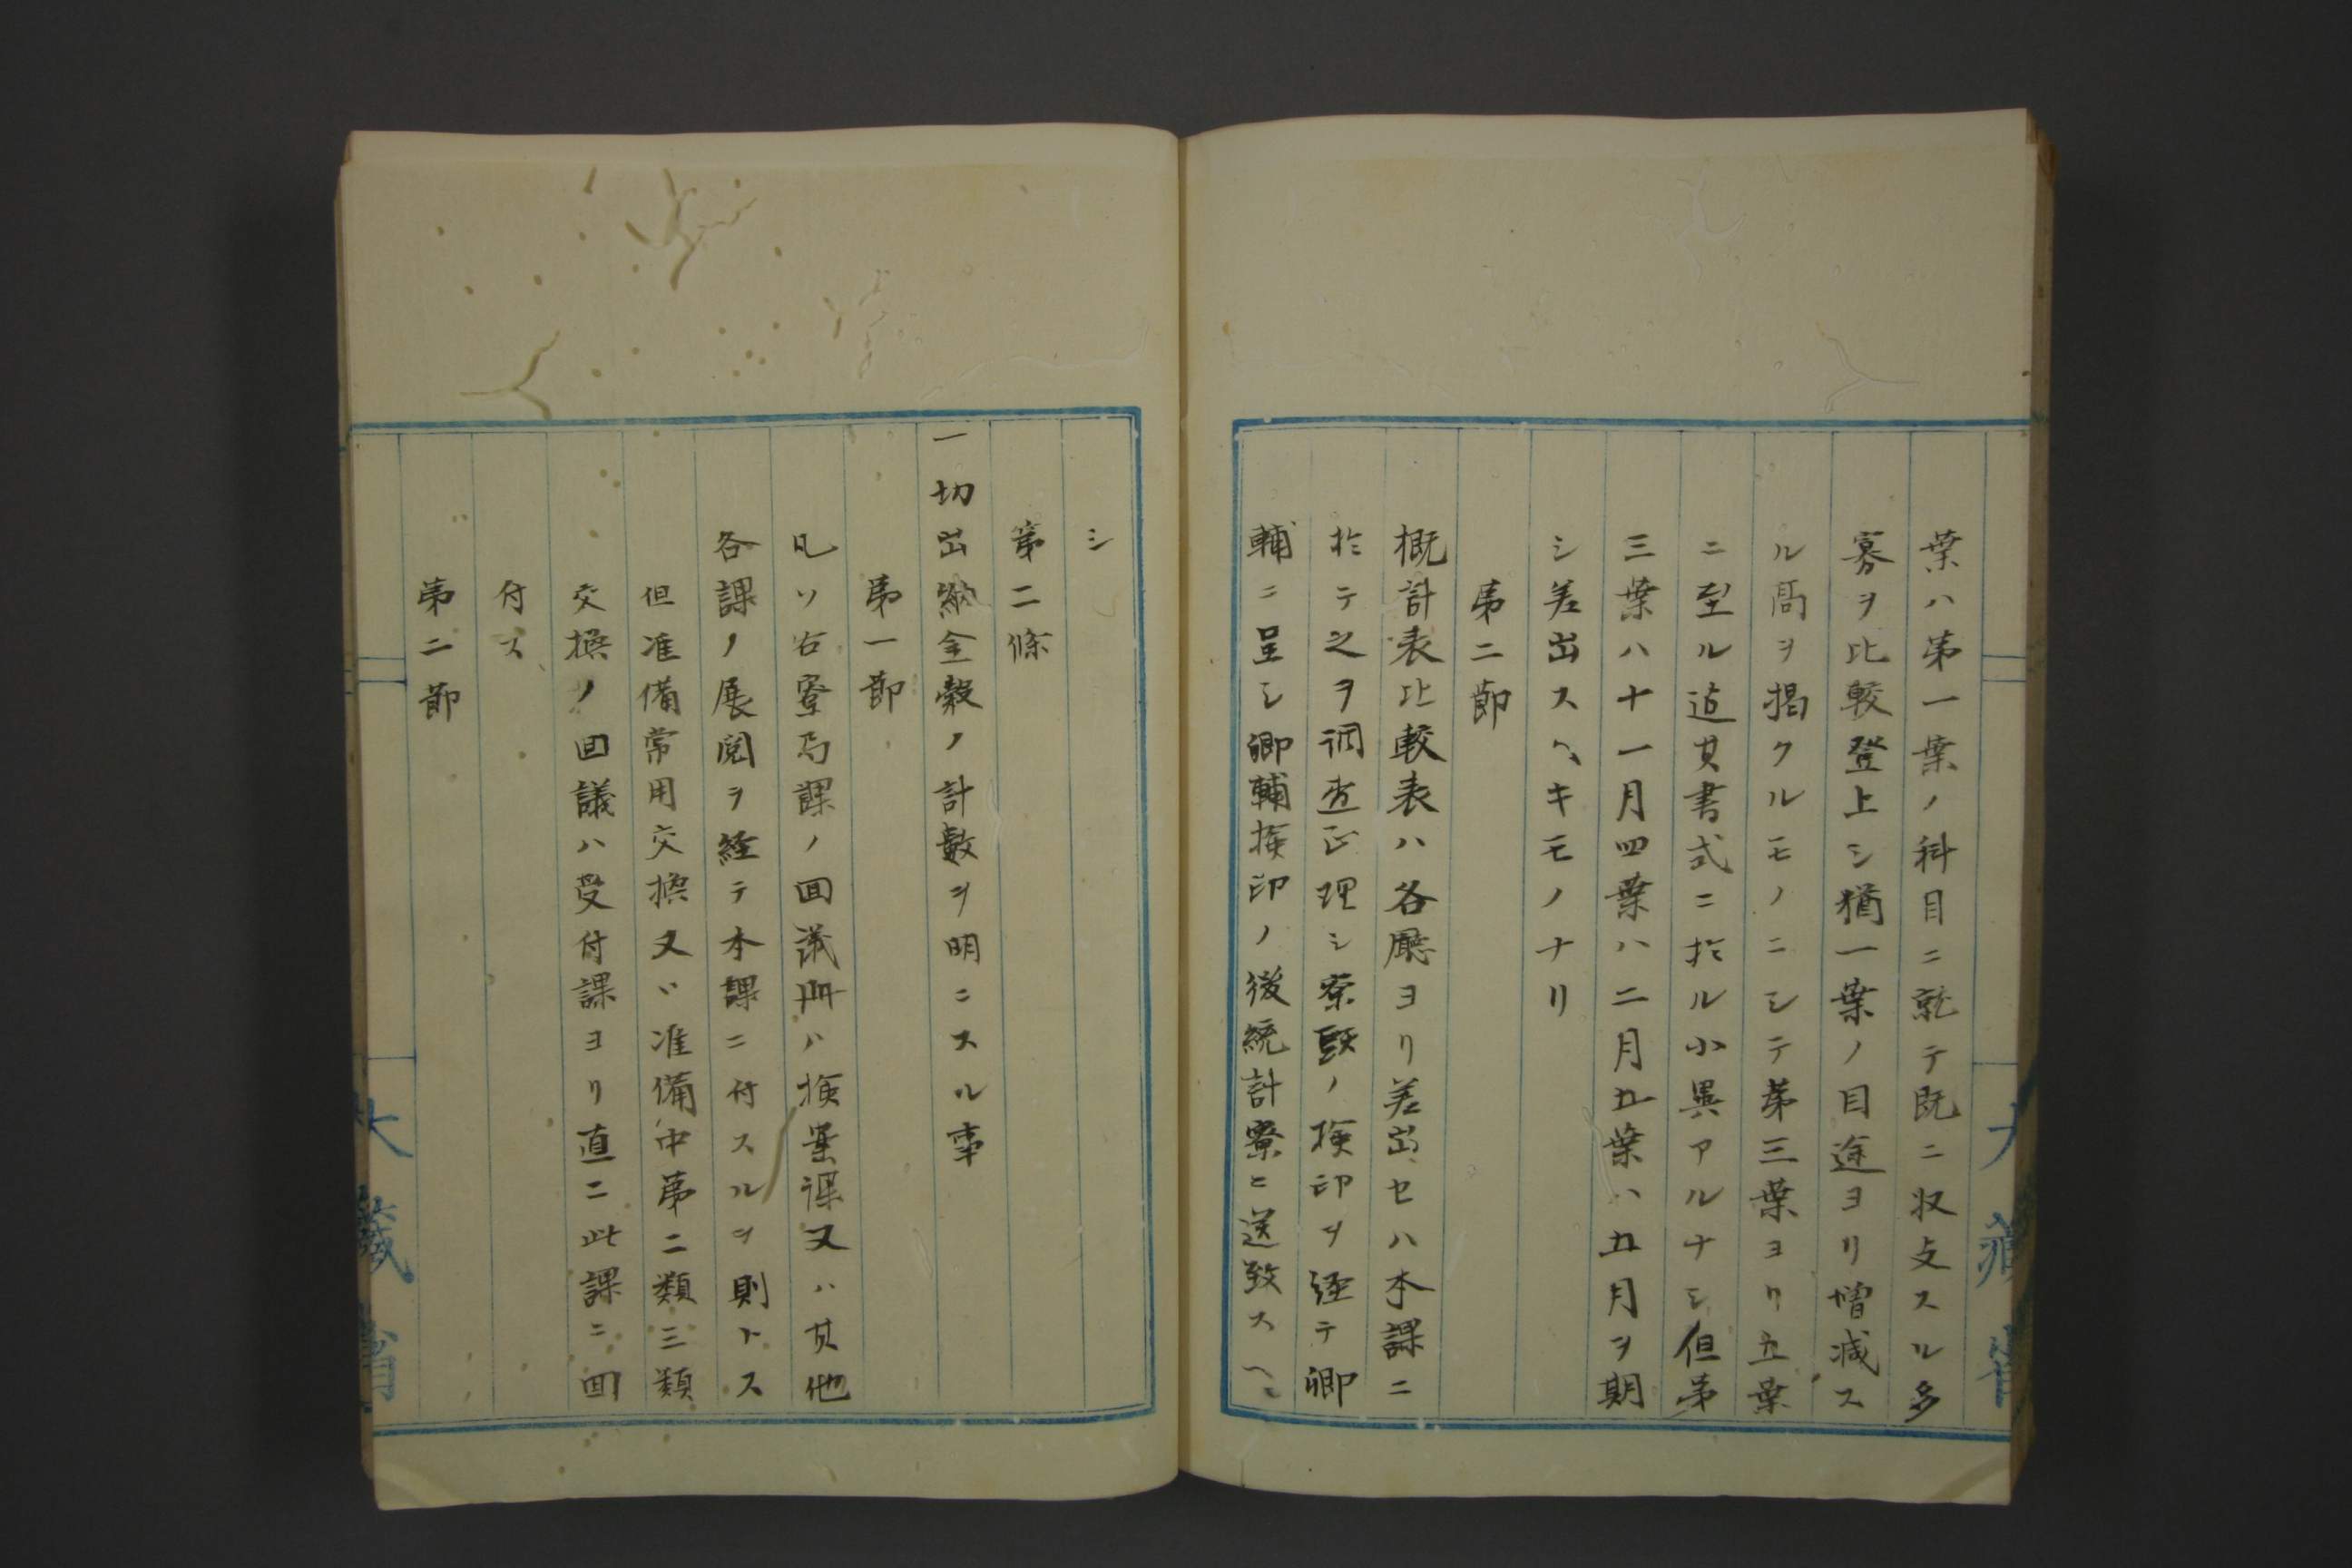 葉ハ第一葉ノ科目ニ就テ既ニ収支スル多
寡ヲ比較登上シ猶一葉ノ目途ヨリ増減ス
ル高ヲ掲クルモノニシテ第三葉ヨリ五葉
ニ至ル迠其書式ニ於ル小異アルナシ但第
三葉ハ十一月四葉ハ二月五葉ハ五月ヲ期
シ差出スヘキモノナリ
第二節
概計表比較表ハ各廳ヨリ差出セハ本課ニ
於テ之ヲ調査正理シ寮頭ノ検印ヲ経テ卿
輔ニ呈シ卿輔検印ノ後統計寮ヒ送致スヘ
シ
第二條
一切出納金穀ノ計數ヲ明ニスル事
第一節
凡ソ右寮局課ノ回議冊ハ検案課又ハ其他
各課ノ展閲ヲ経テ本課ニ付スルヲ則トス
但准備常用交換又ハ准備中第二類三類
交換ノ回議ハ受付課ヨリ直ニ此課ニ回
付ス
第二節
大藏省
大藏省